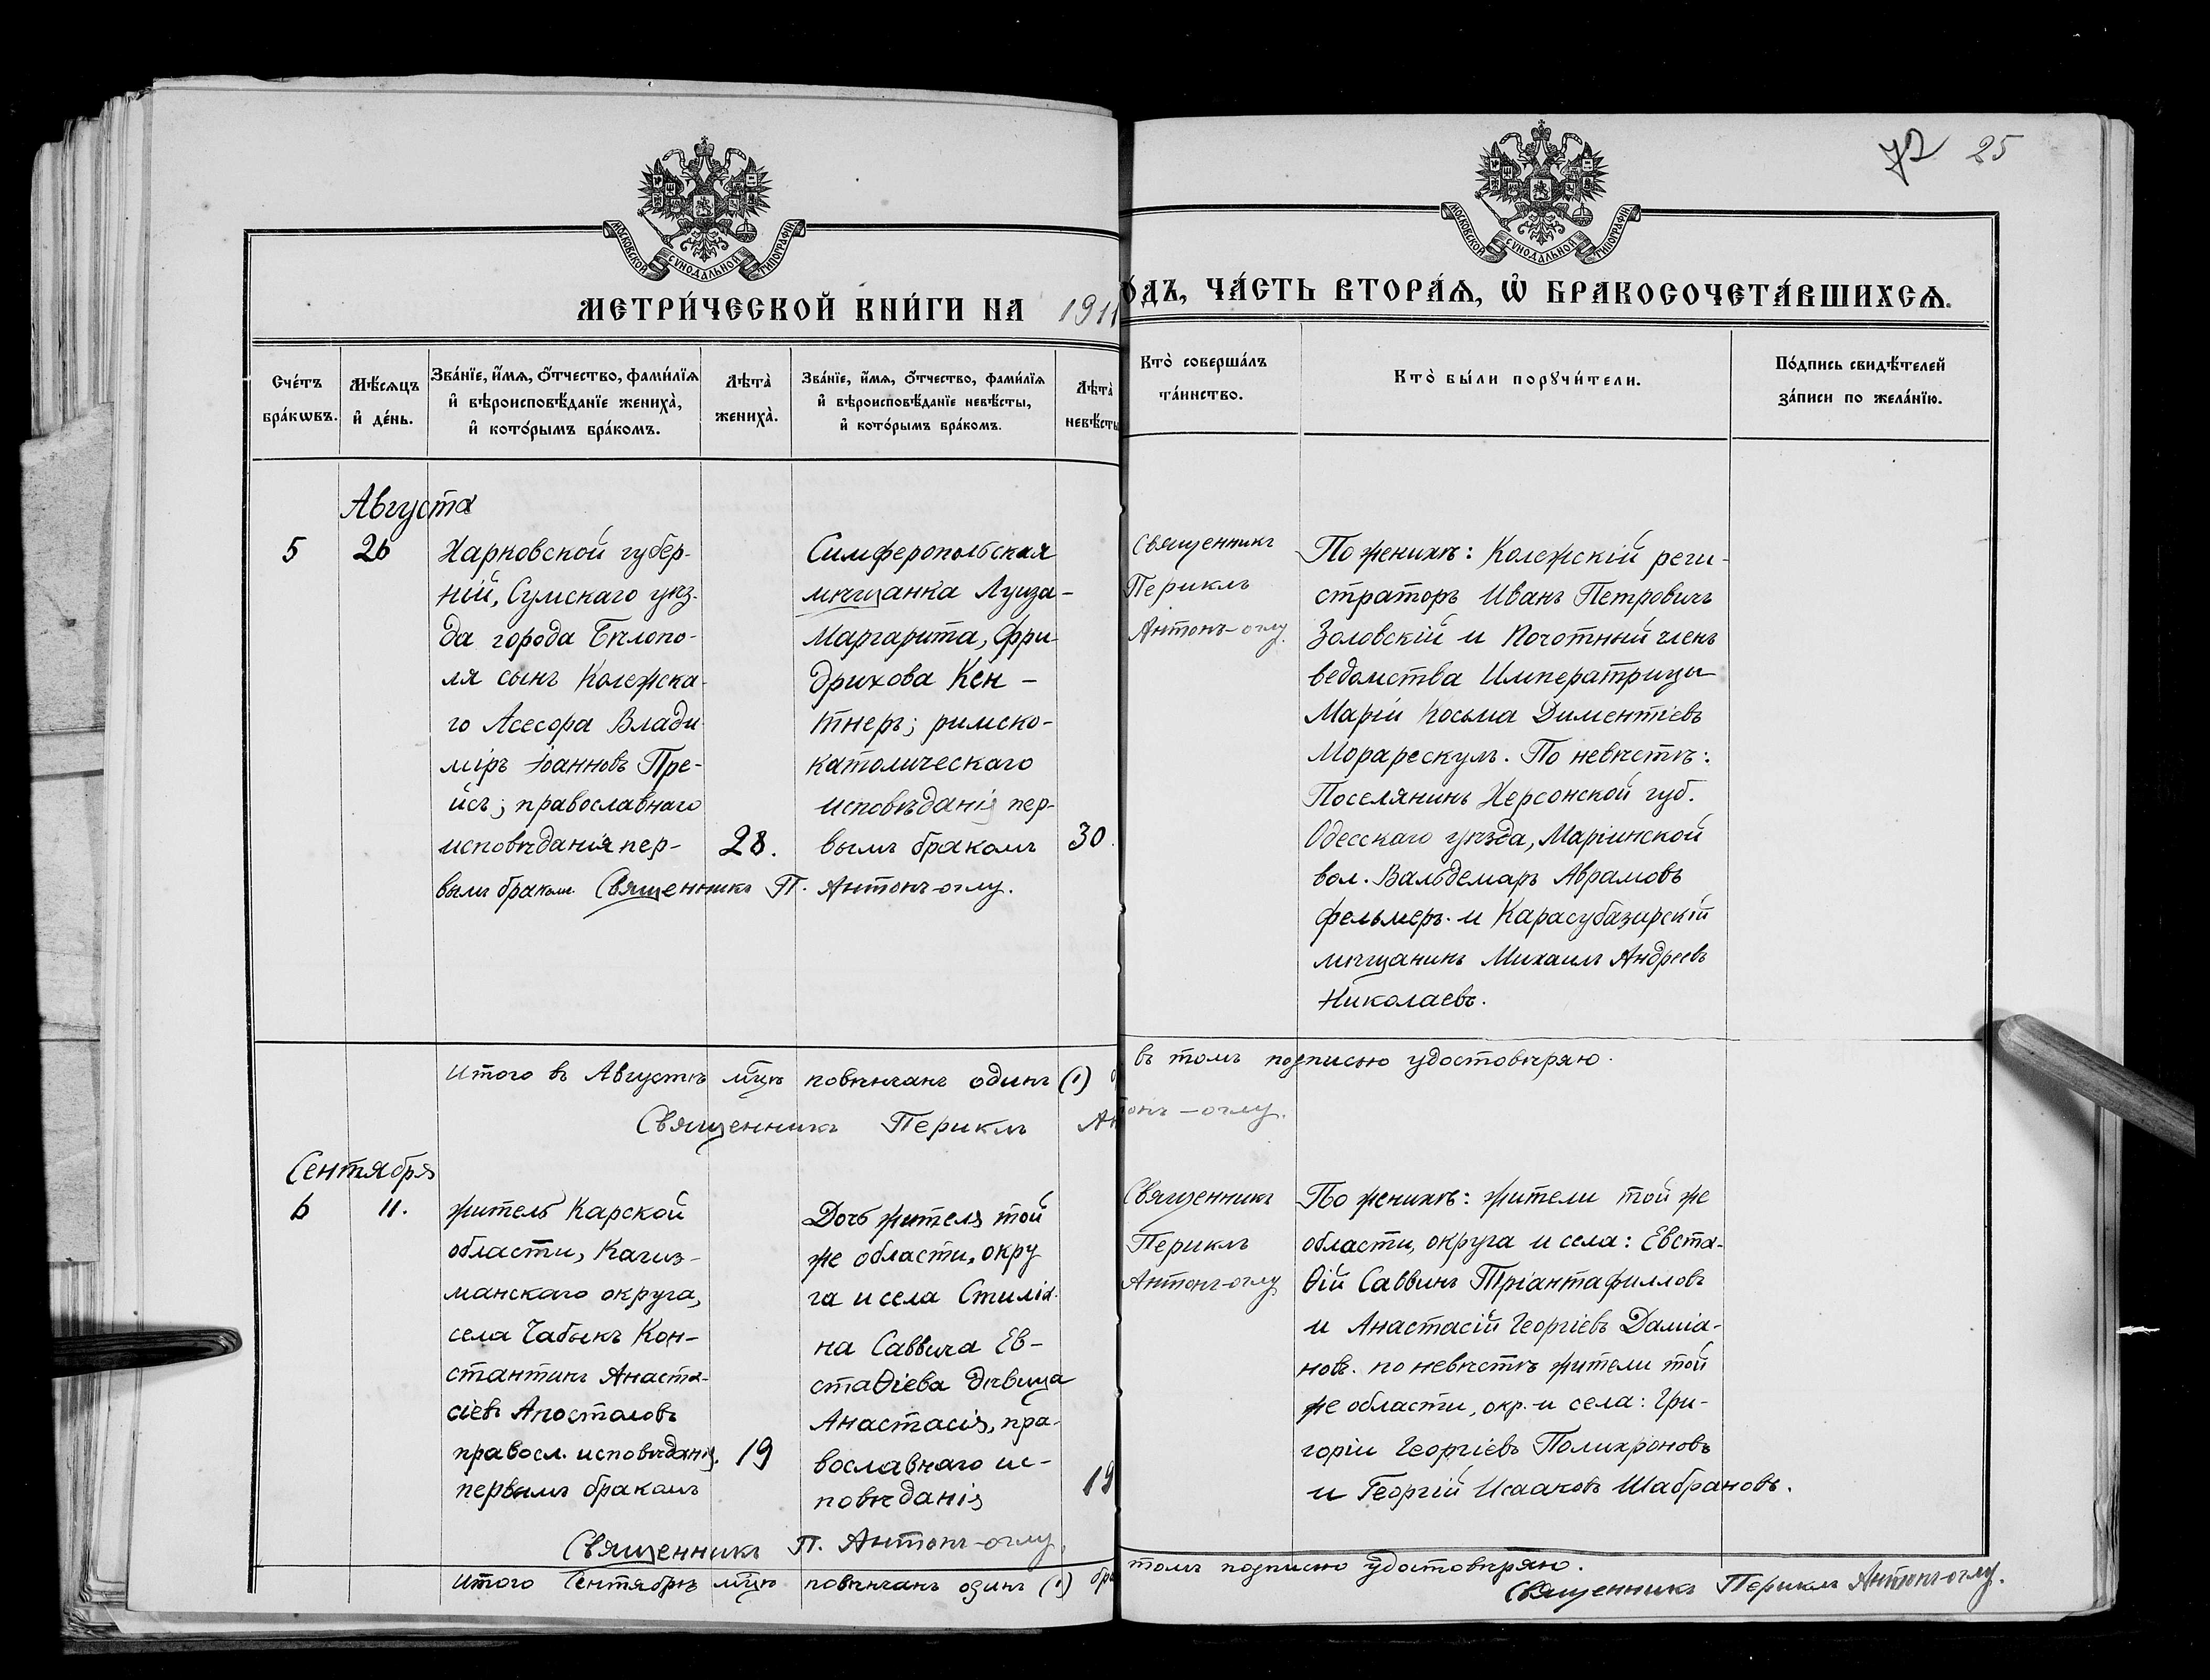 72 25
МОСКОВСКОЙ СѴНОДАЛЬНОЙ ТИПОГРАФІИ.
МОСКОВСКОЙ СѴНОДАЛЬНОЙ ТИПОГРАФІИ.
МЕТРИ́ЧЕСКОЙ КНИ́ГИ НА 1911
О́ДЪ, ЧА́СТЬ ВТОРА́Ѧ, Ѡ҆ БРАКОСОЧЕТА́ВШИХСѦ.
Сче́тъ
бра́кѡвъ.
Мѣ́сѧцъ
и҆ де́нь.
Зва́нїе, и҆́мѧ, ѻ҆́тчество, фами́лїѧ
и҆ вѣроисповѣ́данїе жениха̀,
и҆ кото́рымъ бра́комъ.
Лѣта̀
жениха̀.
Зва́нїе, и҆́мѧ, ѻ҆́тчество, фами́лїѧ
и҆ вѣроисповѣ́данїе невѣ́сты,
и҆ кото́рымъ бра́комъ.
Лѣта̀
невѣ́сты
Кто̀ соверша́лъ
та́инство.
Кто̀ бы́ли порꙋчи́тели.
По́дпись свидѣ́телей
за́писи по жела́нїю.
Августа
5
26
Харковской губер-
ній, Сумскаго уѣз-
да города Бѣлопо-
ля сынъ Колежска-
го Асесора Влади-
міръ Іоанновъ Пре-
йсъ; православнаго
исповѣданія пер-
вымъ бракомъ.
28.
Симферопольская
мѣщанка Луиза-
Маргарита, Фри-
дрихова Кен-
тнеръ; римско-
католическаго
исповѣданія пер-
вымъ бракомъ
30.
Священникъ П. Антонъ-оглу.
Священникъ
Периклъ
Антонъ-оглу.
По женихѣ: Колежскій реги-
страторъ Иванъ Петровичъ
Золовскій и Почотный членъ
ведомства Императрицы
Маріи Косьма Диментіевъ
Морарескулъ. По невѣстѣ:
Поселянинъ Херсонской губ.
Одесскаго уѣзда, Маріинской
вол. Вальдемаръ Аврамовъ
Фельмеръ. и Карасубазарскій
мѣщанинъ Михаилъ Андреевъ
Николаевъ.
Итого въ Августѣ мцѣ повѣнчанъ одинъ (1) въ томъ подписью удостовѣряю.
Священникъ Периклъ Антонъ-оглу.
Сентября
6
11.
житель Карской
области, Кагиз-
манскаго округа,
села Чабыкъ Кон-
стантинъ Анаста-
сіевъ Апостоловъ
правосл. исповѣданія.
первымъ бракомъ
19
Дочь жителя той
же области, окру
га и села Стиліа-
на Саввича Ев-
стаѳіева дѣвица
Анастасія, пра-
вославнаго ис-
повѣданія
19
Священникъ П. Антонъ-оглу.
Священникъ
Периклъ
Антонъ-оглу
По женихѣ: жители той же
области, округа и села: Евста-
ѳій Саввинъ Тріантафилловъ
и Анастасій Георгіевъ Даміа-
новъ. по невѣстѣ жители той
же области, окр. и села: Гри-
горій Георгіевъ Полихроновъ
и Георгій Исааковъ Шабрановъ.
Итого Сентябрѣ мцѣ повѣнчанъ одинъ (1) бра томъ подписью удостовѣряю.
Священникъ Периклъ Антонъ-оглу.